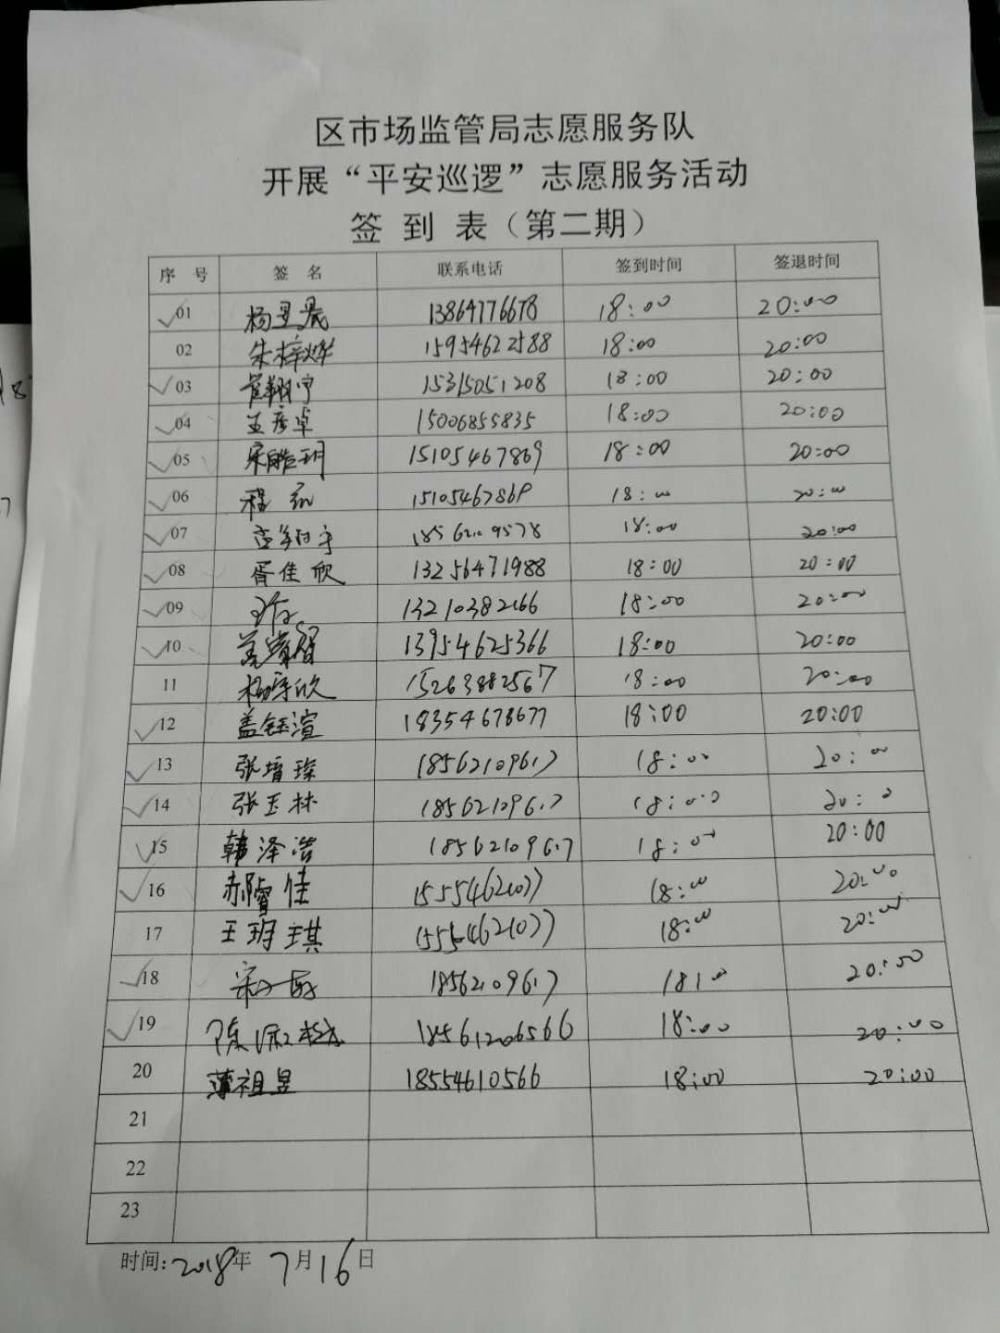 区市场监管局志愿服务队
开展“平安巡逻”志愿服务活动
签 到 表（第二期）
序 号 签 名 联系电话 签到时间 签退时间
01 杨昱晟 13864776678 18:00 20:00
02 朱梓烨 15954622588 18:00 20:00
03 管翔宇 15315051208 18:00 20:00
04 孟彦卓 15006855835 18:00 20:00
05 宋皓玥 15105467869 18:00 20:00
06 15105467869 18:00 20:00
07 18562109578 18:00 20:00
08 胥佳欣 13256471988 18:00 20:00
09 13210382166 18:00 20:00
10 盖睿智 13954625366 18:00 20:00
11 杨宇欣 15263882567 18:00 20:00
12 盖钰渲 18354678677 18:00 20:00
13 张培琛 18562109617 18:00 20:00
14 张玉林 18562109617 18:00 20:00
15 韩泽浩 18562109617 18:00 20:00
16 郝睿佳 15554621077 18:00 20:00
17 王玥琪 15554621077 18:00 20:00
18 18562109617 18:00 20:00
19 18561206566 18:00 20:00
20 薄祖昱 18554610566 18:00 20:00
21
22
23
时间:2018年 7月16日